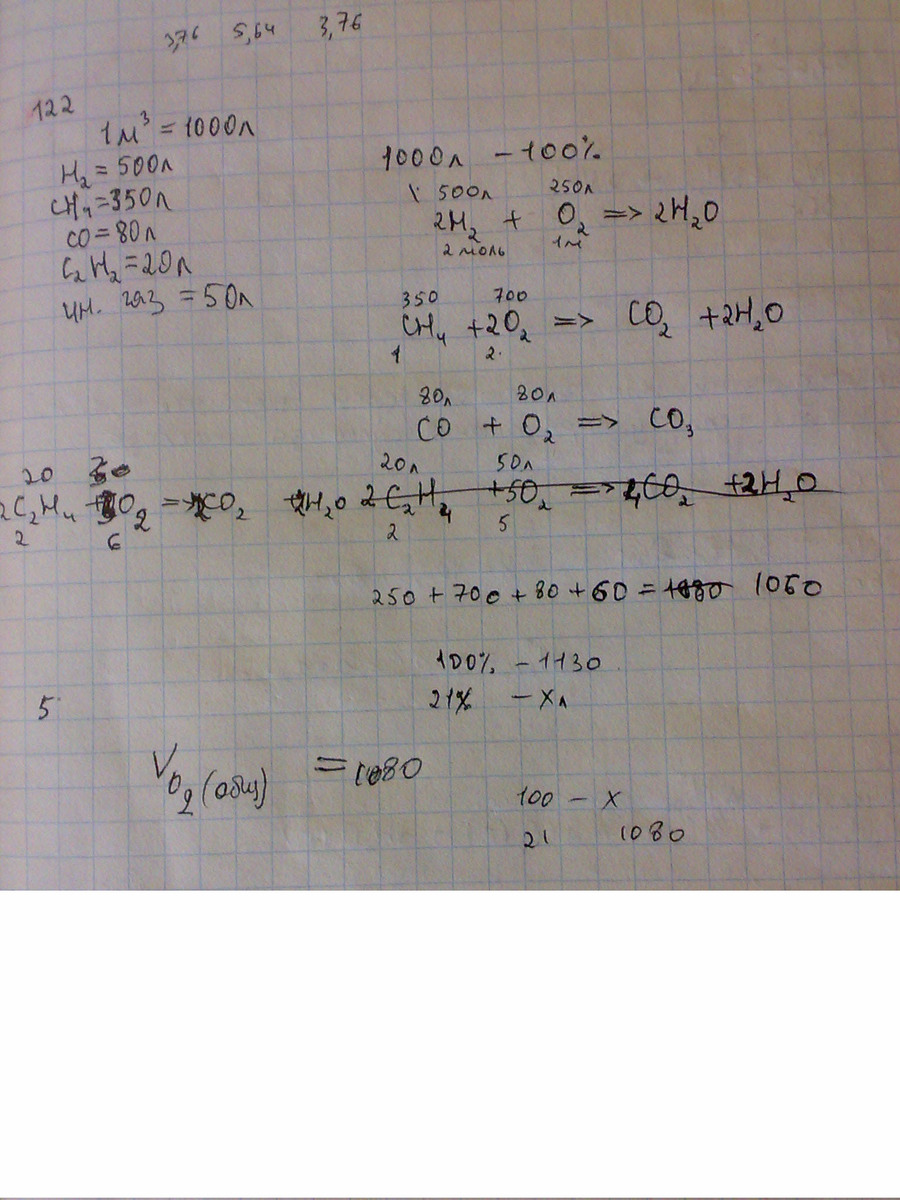 3,76 5,64 3,76
122
1м³ = 1000л
H₂ = 500л
CH₄ = 350л
CO = 80л
C₂H₂ = 20л
ин. газ = 50л
1000л - 100%
500л 250л
2H₂ + O₂ => 2H₂O
2 моль 1м
350 700
CH₄ + 2O₂ => CO₂ + 2H₂O
1 2
80л 80л
CO + O₂ => CO₃
20 20л 50л
2C₂H₄ O₂ => CO₂ H₂O 2C₂H₂ +5O₂ => 4CO₂ +2H₂O
2 6 2 5
250 + 700 + 80 + 60 = 1080 1060
100% - 1130
21% - xл
5
V O₂ (общ) = 1080
100 - x
21 1080